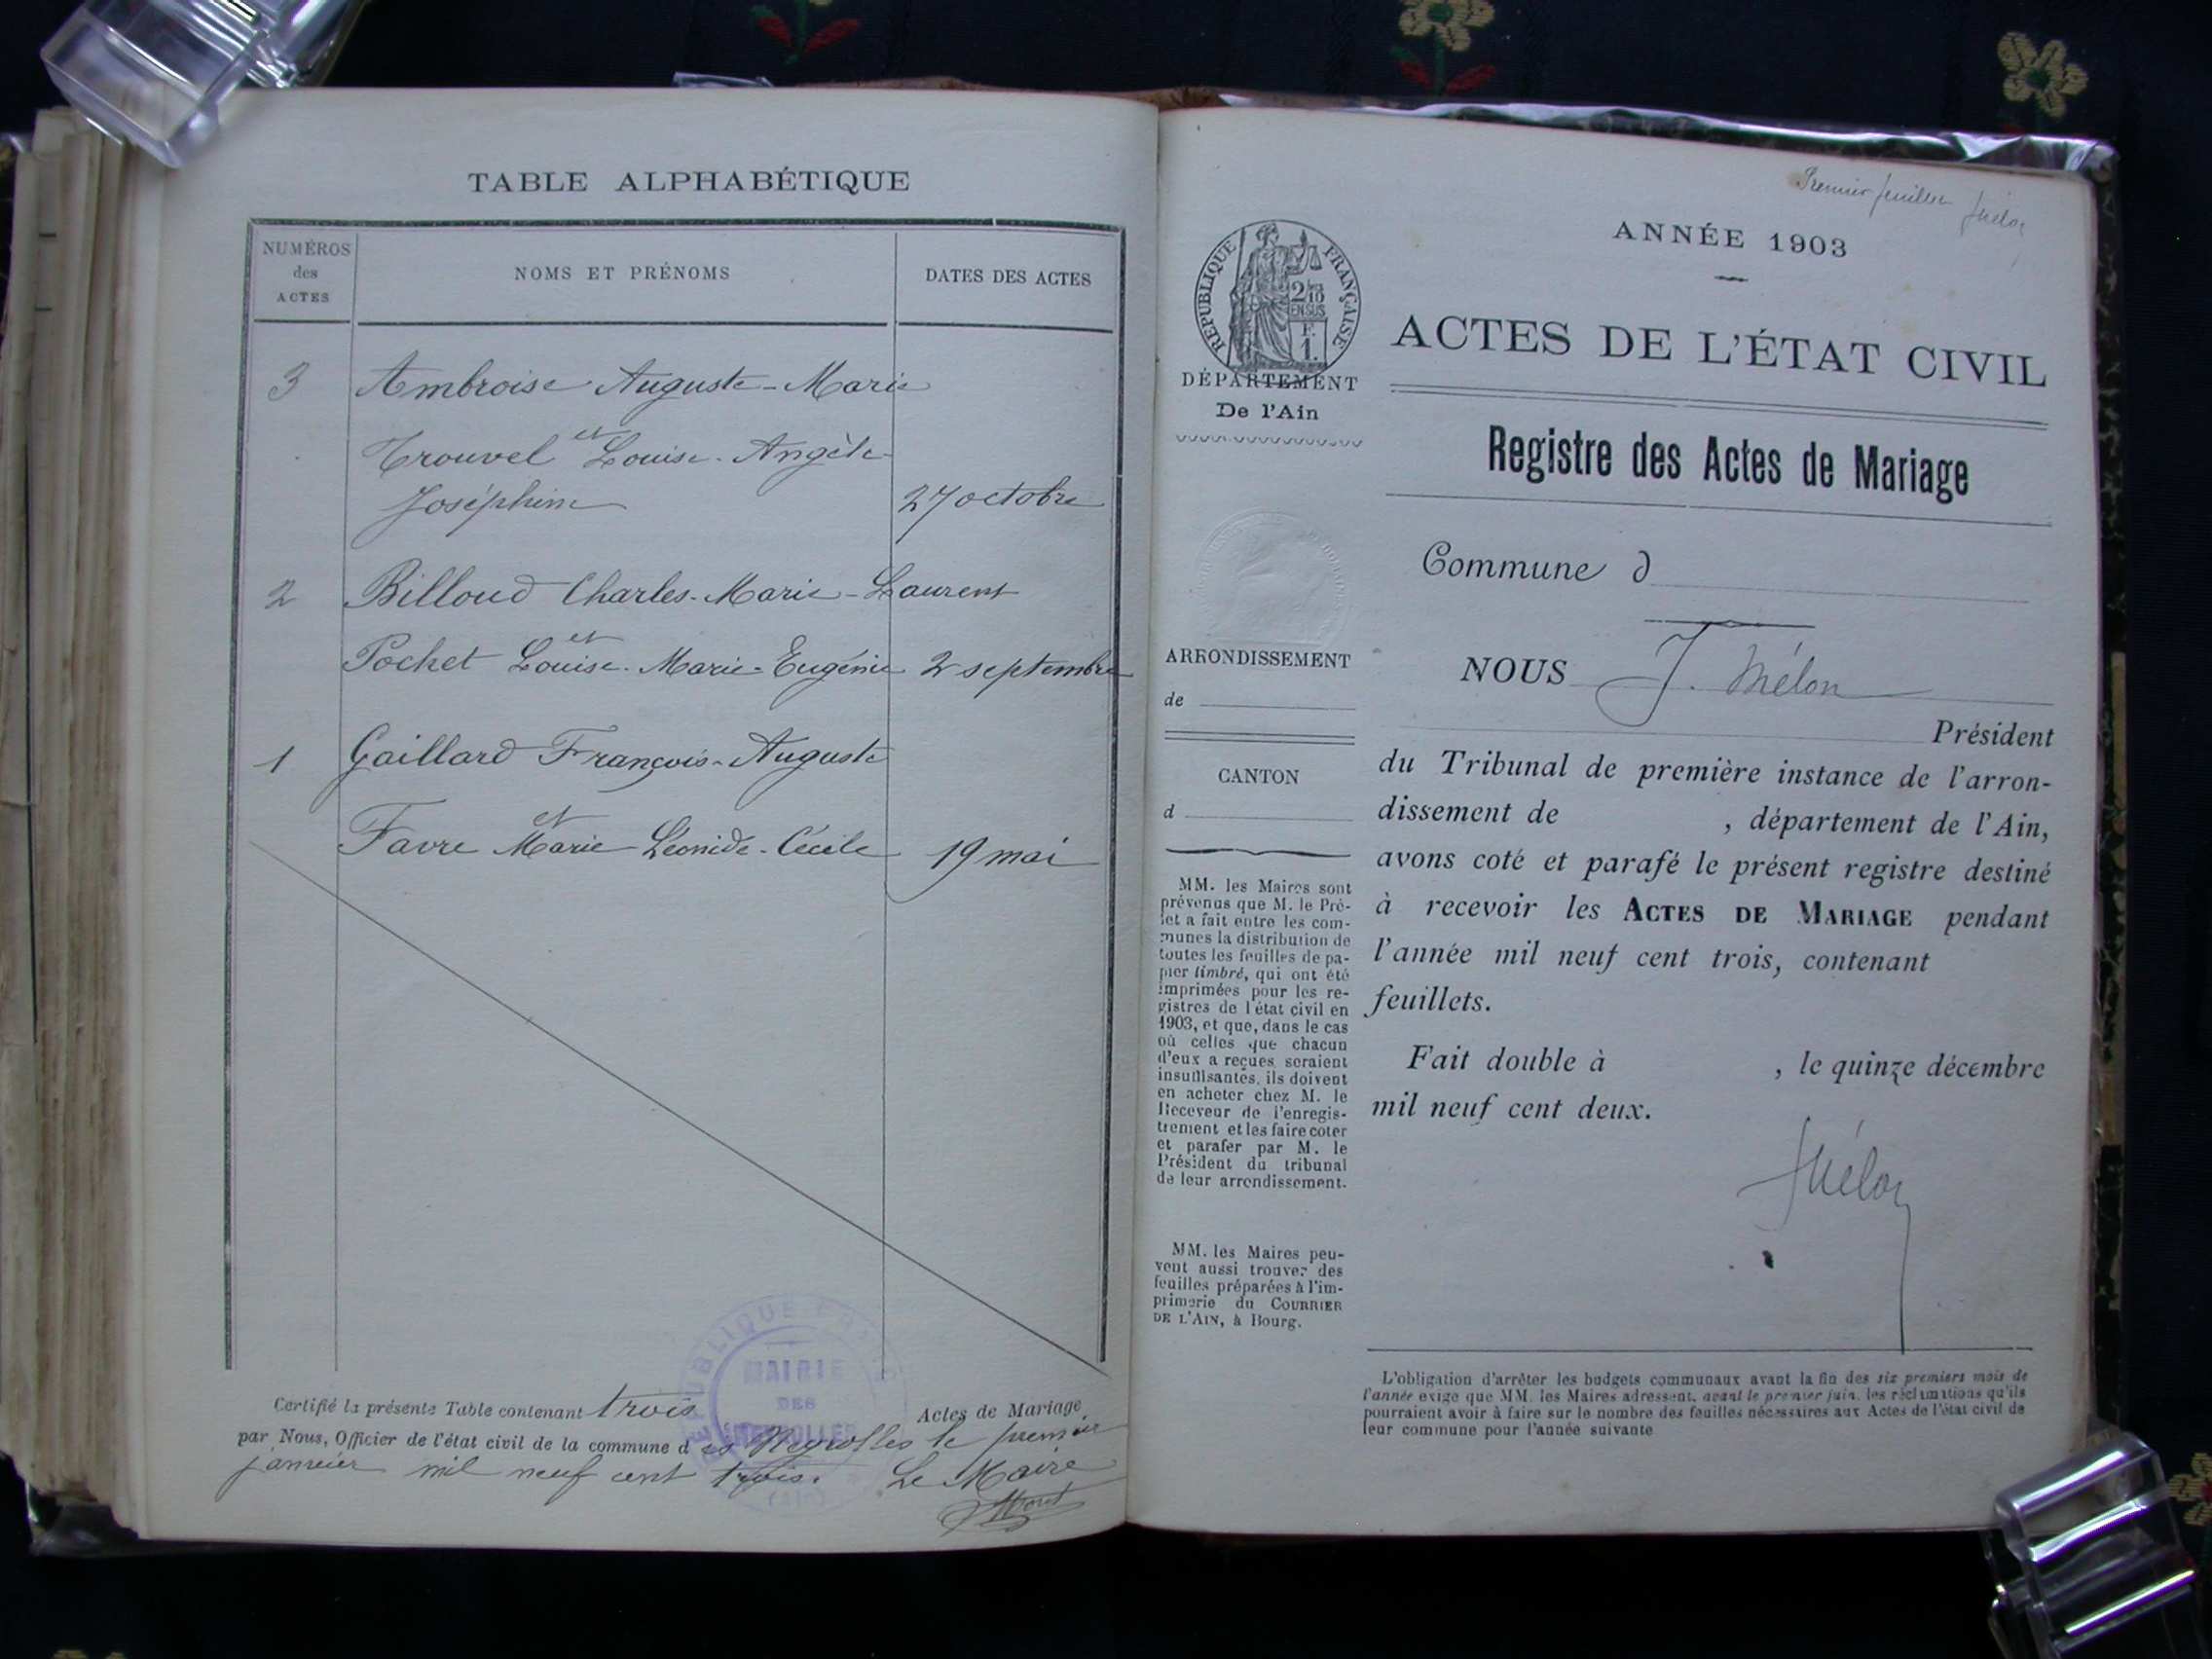 TABLE ALPHABÉTIQUE
NUMÉROS
des
ACTES
NOMS ET PRÉNOMS
DATES DES ACTES
3 Ambroise Auguste-Marie
et
Trouvel Louise-Angèle-
Joséphine 27 octobre
2 Billoud Charles-Marie-Laurent
et
Pochet Louise-Marie-Eugénie 2 septembre
1 Gaillard François-Auguste
et
Favre Marie Léonide-Cécile 19 mai
RÉPUBLIQUE
MAIRIE
DES
NEYROLLES
(Ain)
Certifié la présente Table contenant trois Actes de Mariage
par Nous, Officier de l'état civil de la commune des Neyrolles le premier
janvier mil neuf cent trois. Le Maire
Premier feuillet
ANNÉE 1903
RÉPUBLIQUE FRANÇAISE
2/10
EN SUS
F.
1.
DÉPARTEMENT
De l'Ain
ARRONDISSEMENT
de
CANTON
d
MM. les Maires sont
prévenus que M. le Pré-
fet a fait entre les com-
munes la distribution de
toutes les feuilles de pa-
pier timbré, qui ont été
imprimées pour les re-
gistres de l'état civil en
1903, et que, dans le cas
où celles que chacun
d'eux a reçues seraient
insuffisantes, ils doivent
en acheter chez M. le
Receveur de l'enregis-
trement et les faire coter
et parafer par M. le
Président du tribunal
de leur arrondissement.
MM. les Maires peu-
vent aussi trouver des
feuilles préparées à l'im-
primerie du COURRIER
DE L'AIN, à Bourg.
ACTES DE L'ÉTAT CIVIL
Registre des Actes de Mariage
Commune d
NOUS J. Mélon
Président
du Tribunal de première instance de l'arron-
dissement de , département de l'Ain,
avons coté et parafé le présent registre destiné
à recevoir les ACTES DE MARIAGE pendant
l'année mil neuf cent trois, contenant
feuillets.
Fait double à , le quinze décembre
mil neuf cent deux.
L'obligation d'arrêter les budgets communaux avant la fin des six premiers mois de
l'année exige que MM. les Maires adressent, avant le premier juin, les réclamations qu'ils
pourraient avoir à faire sur le nombre des feuilles nécessaires aux Actes de l'état civil de
leur commune pour l'année suivante